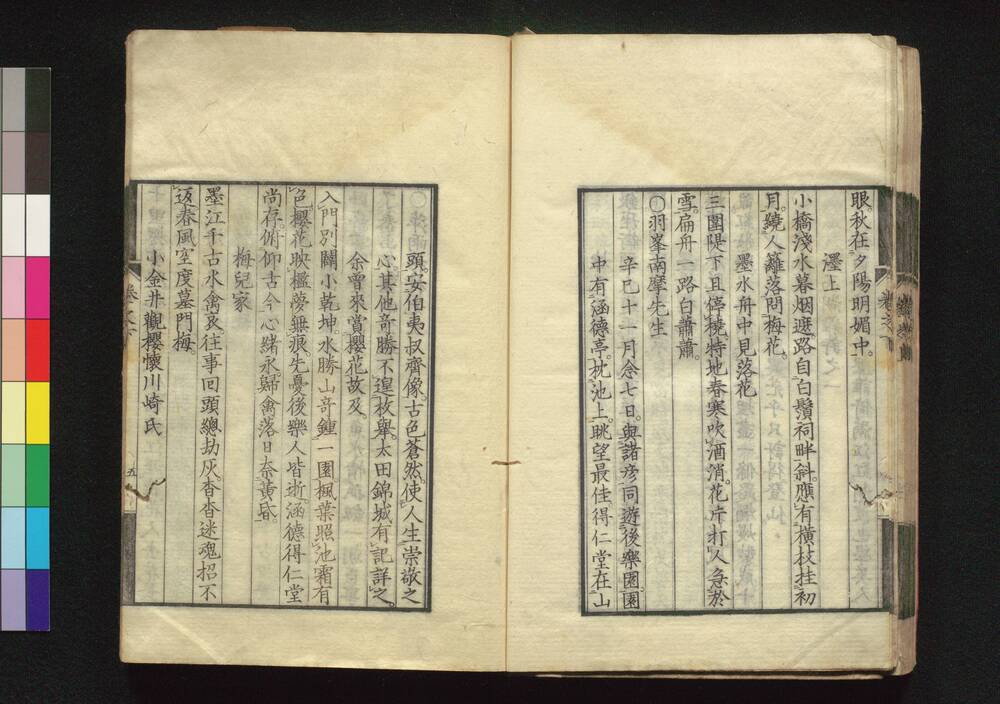 眼。秋在夕陽明媚中。
墨上
小橋淺水暮烟遮。路自白鬚祠畔斜。應有橫枝挂初
月。繞人籬落問梅花。
墨水舟中見落花
三圍隄下且停橈。特地春寒吹酒消。花片打人急於
雪。扁舟一路白蕭蕭。
○羽峯南摩先生
辛巳十一月念七日。與諸彥同遊後樂園。園
中有涵德亭。枕池上。眺望最佳。得仁堂在山
頭。安伯夷叔齊像。古色蒼然。使人生崇敬之
心。其他奇勝不遑枚舉。太田錦城有記詳之。
余曾來賞櫻花故及。
入門別闢小乾坤。水勝山奇鍾一園。楓葉照池霜有
色。櫻花映檻夢無痕。先憂後樂人皆逝。涵德得仁堂
尚存。俯仰古今心緒永。歸禽落日奈黃昏。
梅兒家
墨江千古水禽哀。往事回頭總劫灰。杳杳迷魂招不
返。春風空度墓門梅。
小金井觀櫻懷川崎氏
卷之下
五